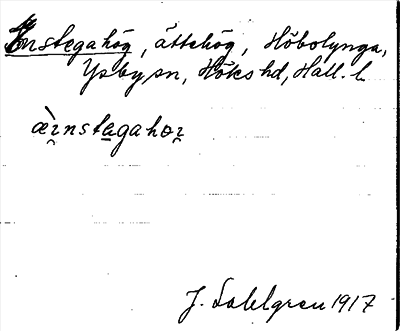 Enstegahög, ättehög, Höbolynga,
Ysby sn, Höks hd, Hall. l.
æ̀ɪnstagahoɪ
J. Sahlgren 1917